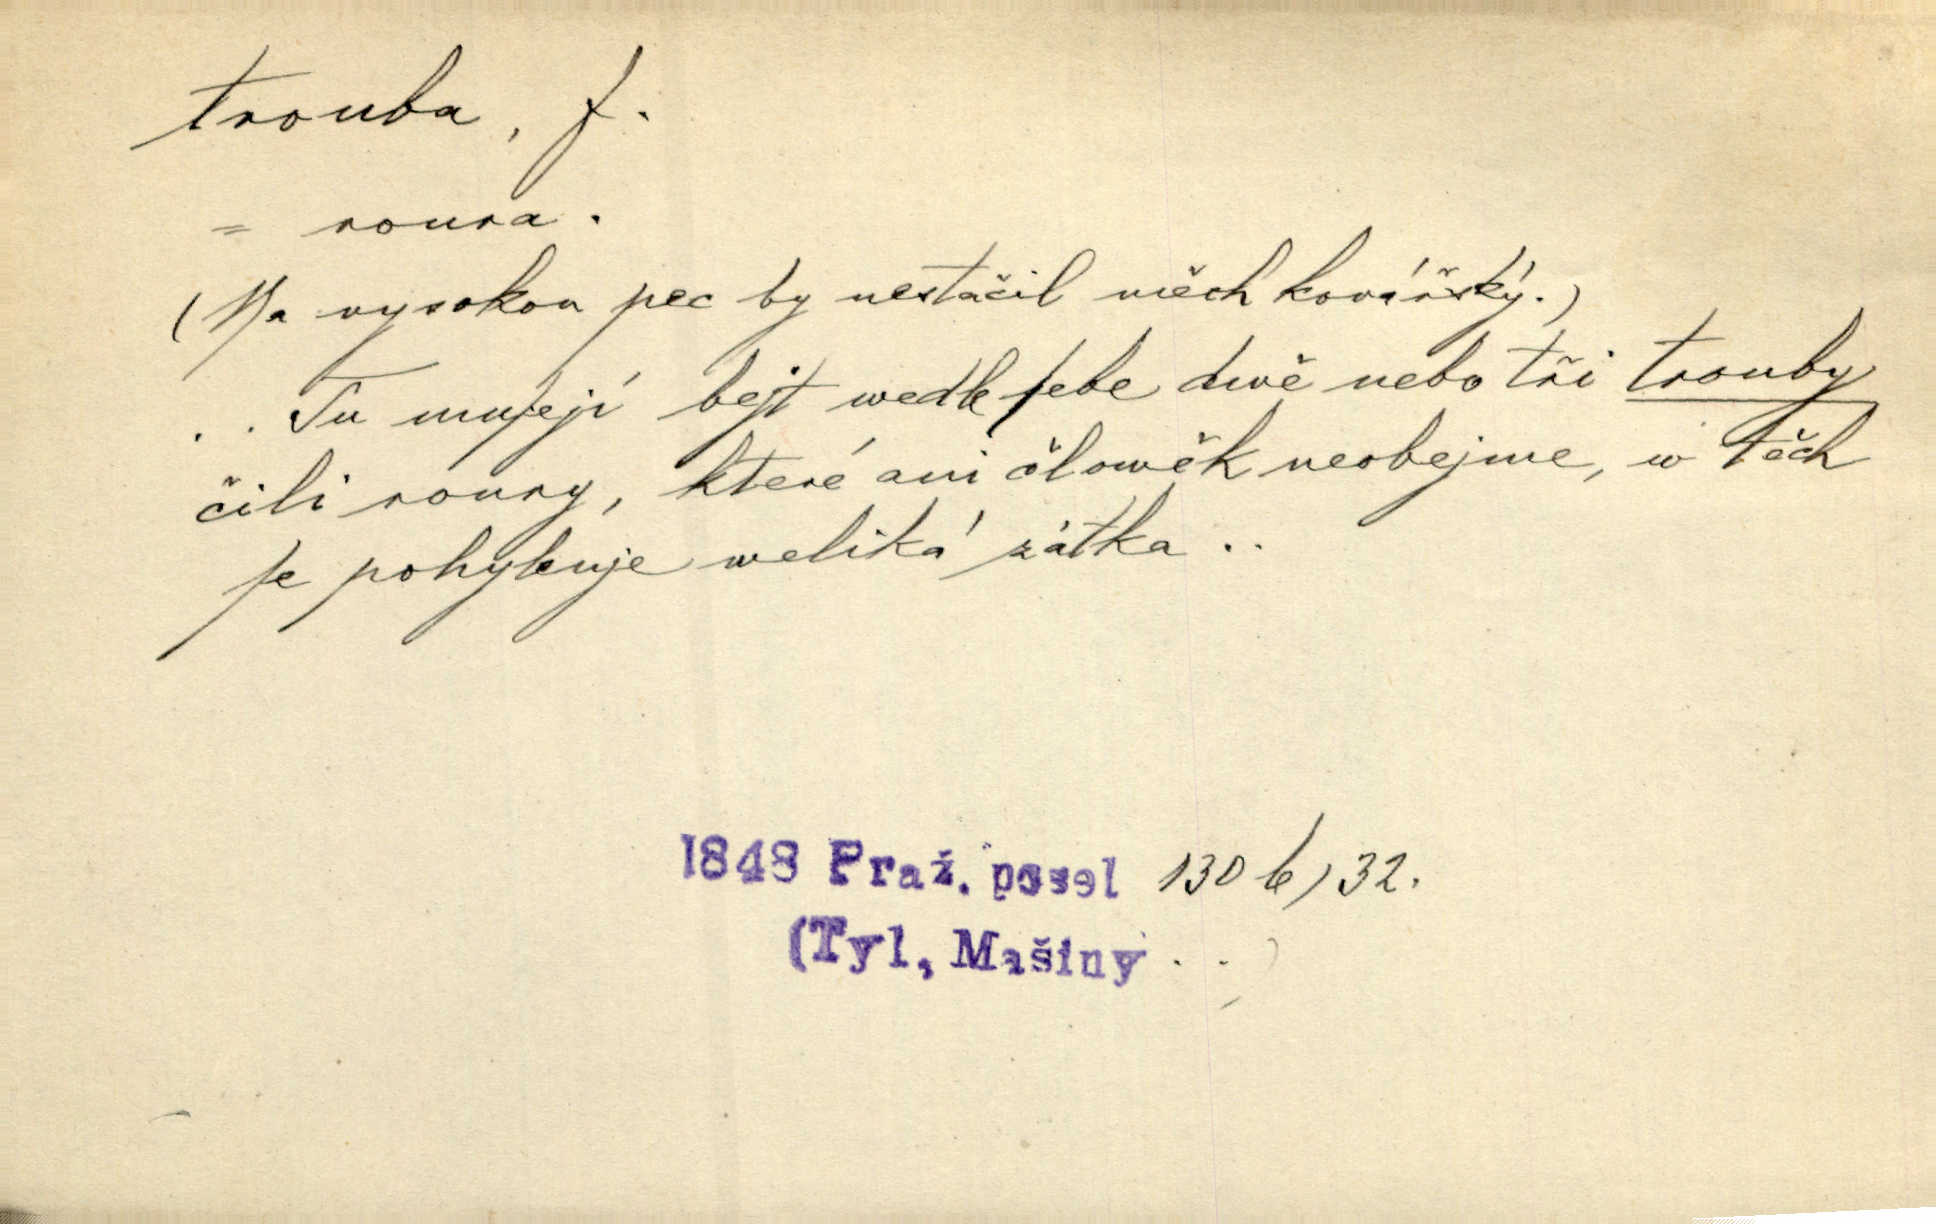 trouba, f.
= roura.
(Na vysokou pec by nestačil měch kovářský.)
.. Tu muſejí bejt wedle ſebe dwě nebo tři trouby
čili roury, které ani člowěk neobejme, w těch
ſe pohybuje weliká zátka ..
1848 Praž. posel 130 b, 32.
(Tyl, Mašiny ..)